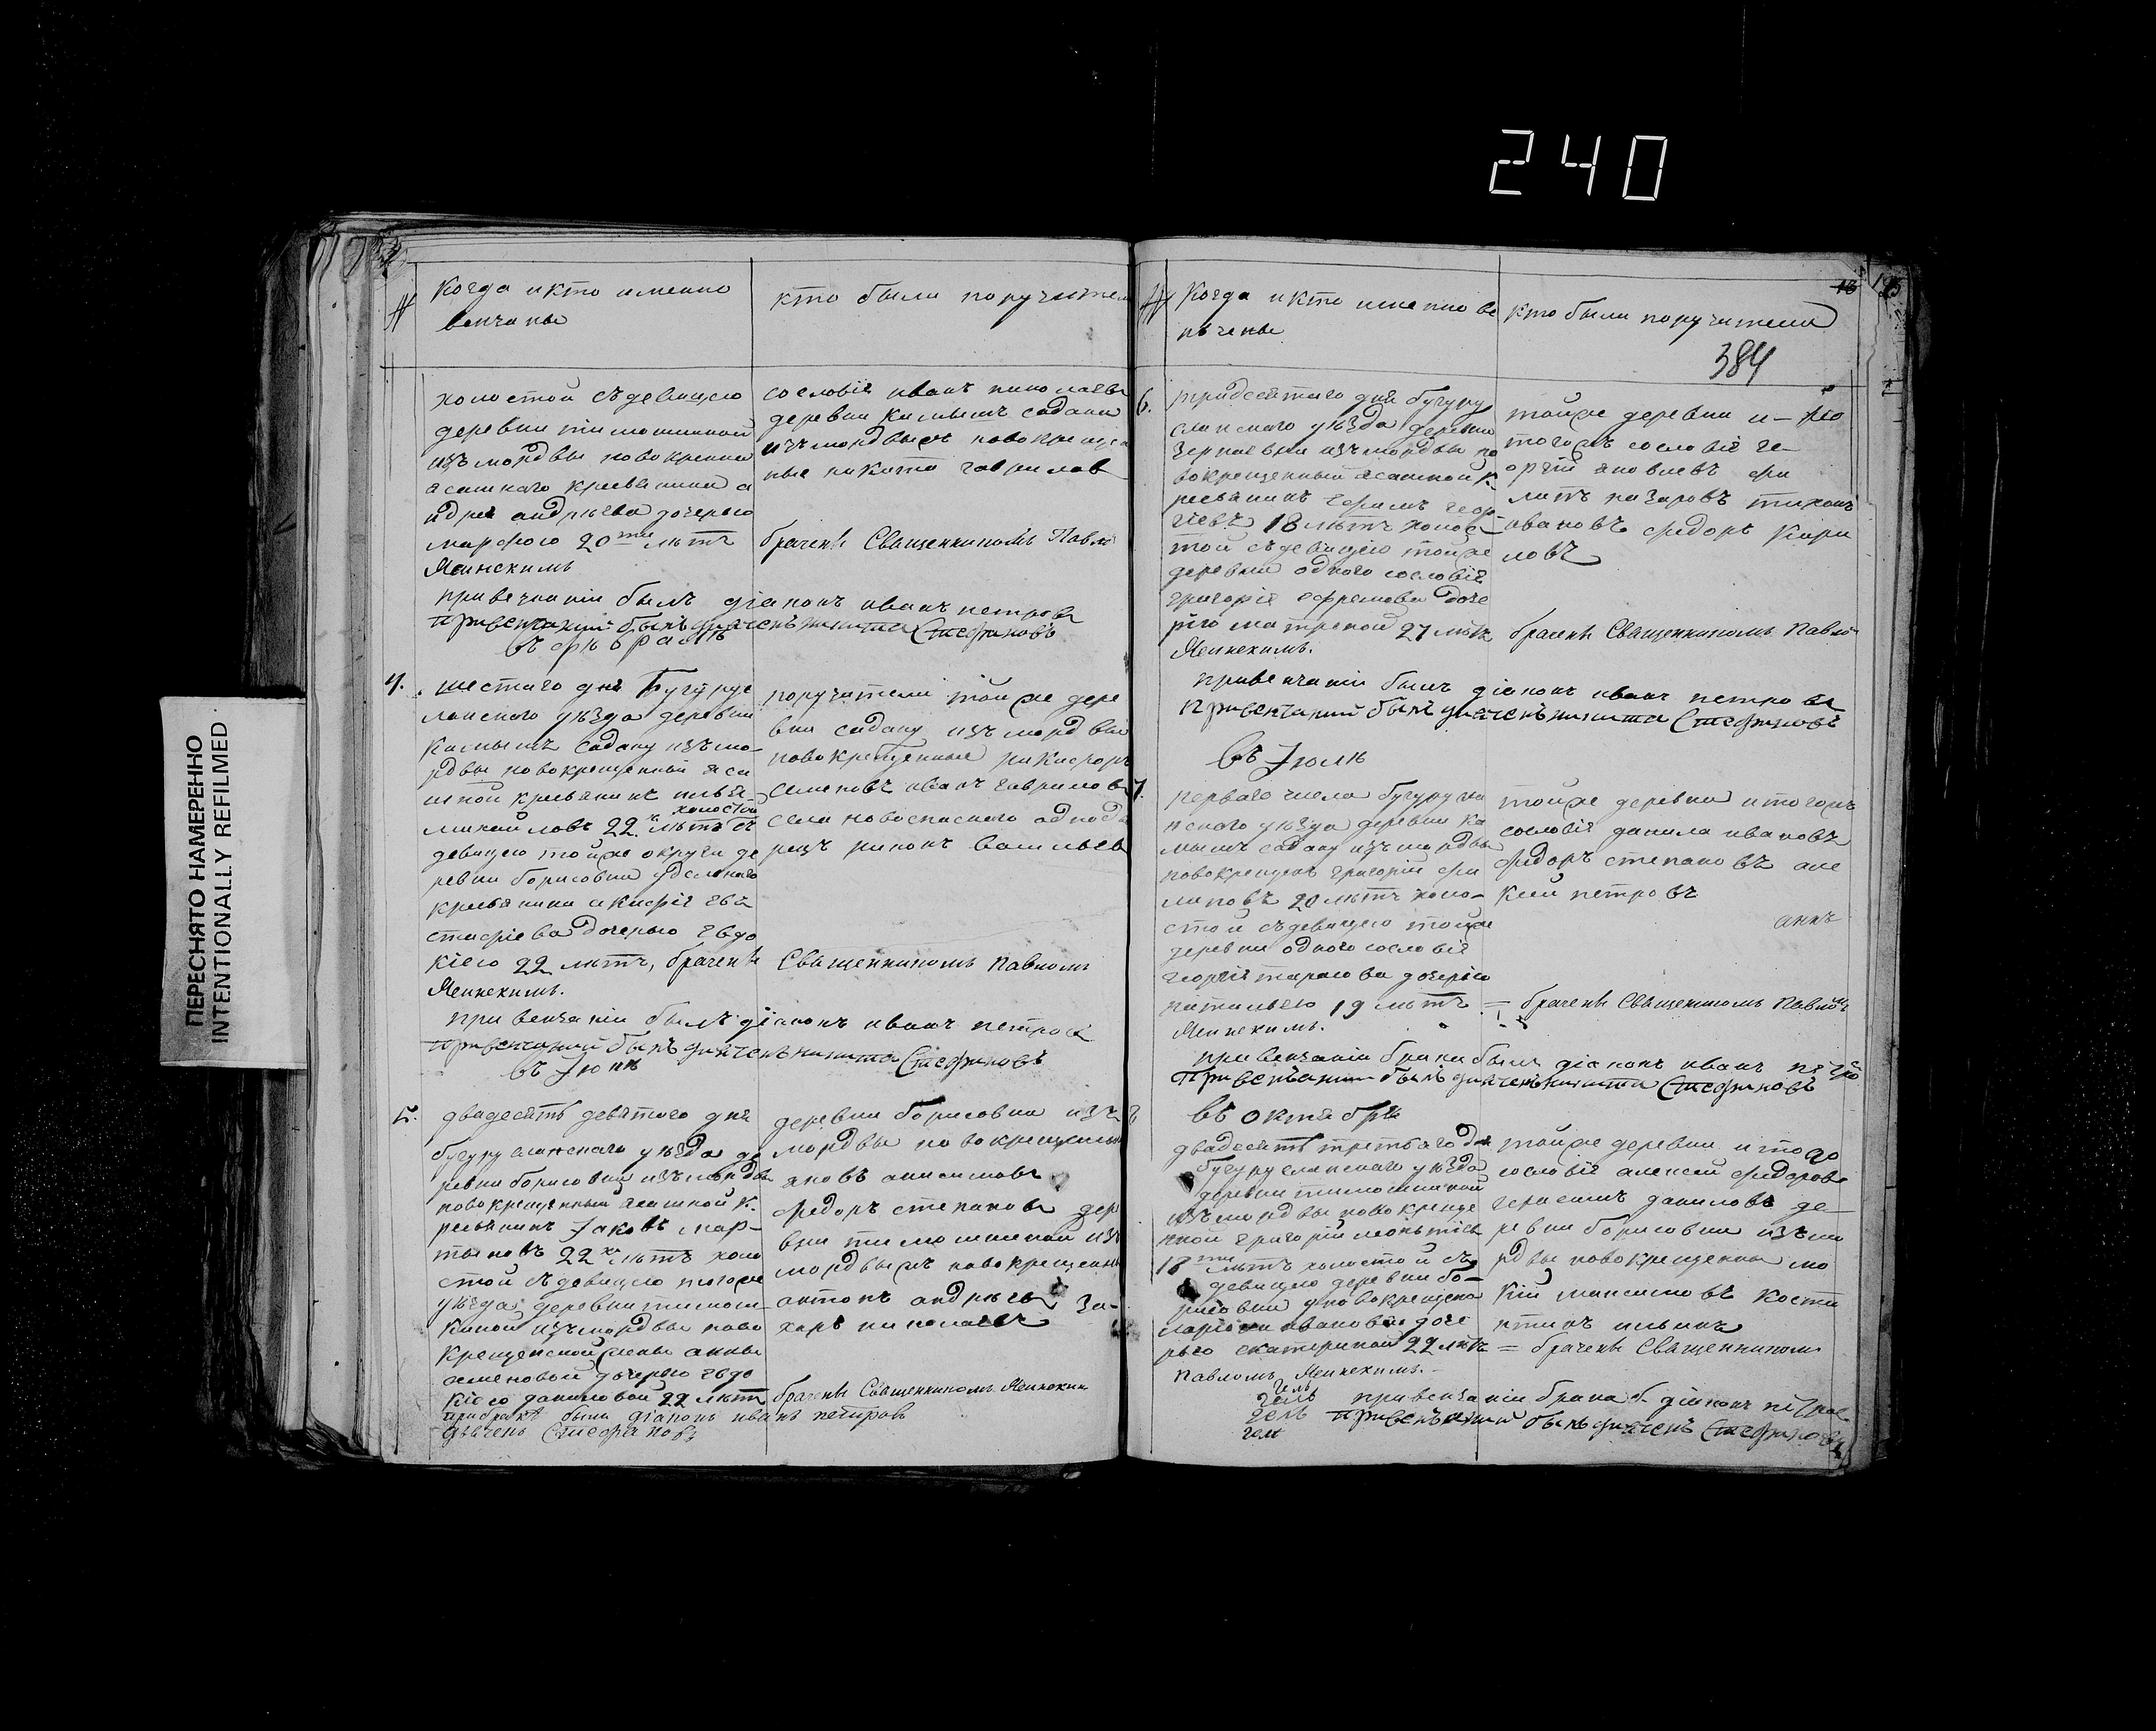 240
ПЕРЕСНЯТО НАМЕРЕННО
INTENTIONALLY REFILMED
№
Когда икто именно
венчаны
кто были поручители
холостой съдевицею
деревни тимошкиной
изъмордвы новокрещен
ясашнаго крестьянина а
ндрея андреева дочерью
марфою 20ти летъ
Ясинскимъ
сословія иванъ николаевъ
деревни камышъ садака
изъмордвыжъ новокреще
ные никита гавриловъ
браченъ Священникомъ Павло
привенчаніи былъ діаконъ иванъ петровъ
привенчаніи былъ дьяченъ никита Стефановъ
въ февралѣ
4.
шестаго дня Бугуру
сланскаго уѣзда деревни
камышъ садаку изъмо
рдвы новокрещенный яса
шной крестьянинъ илья
холостой
михайловъ 22хъ летъ съ
девицею тойже округи де
ревни борисовки удельнаго
крестьянина
стафіева дочерью евдо
кіею 22 летъ, браченъ
Ясинскимъ.
поручители тойже дере
вни садаку изъ мордвы
новокрещенныя никифоръ
семеновъ иванъ гавриловъ
села новоспаскаго однодво
рецъ васильевъ
Священникомъ Павломъ
при венчаніи былъ діаконъ иванъ петровъ
привенчаніи былъ дьяченъ никита Стефановъ
въ Іюнѣ
5.
двадесять девятаго дня
бугурусланскаго уѣзда де
ревни борисовки изъмордвы
новокрещенный ясашной к
рестьянинъ Іаковъ мар
тыновъ 22хъ летъ холо
стой съдевицею тогоже
уѣзда деревни тимош
киной изъмордвы ново
крещенской жены анны
семеновой дочерью евдо
кіею даниловой 22 летъ
деревни борисовки изъ
мордвы новокрещеныя
яковъ анисимовъ
федоръ степановъ дере
вни тимошкиной изъ
мордвыжъ новокрещены
антонъ андреевъ за
харъ николаевъ
браченъ Священникомъ Ясинским
прибракѣ былъ діаконъ иванъ петровъ
дьяченъ Стефановъ
№
Когда икто именно ве
нчаны
кто были поручители
13
384
6.
тридесятаго дня бугуру
сланскаго уѣзда деревни
изъмордвы но
вокрещенный ясашной к
рестьянинъ ефимъ геор
гіевъ 18 летъ холос
той съдевицею тойже
деревни одного сословія
григорія ефремова доче
рію матреной 21 летъ
Ясинскимъ.
тойже деревни и
тогожъ сословія ге
оргій яковлевъ фи
липъ назаровъ тихонъ
ивановъ федоръ кири
ловъ
браченъ Священникомъ Павло
привенчаніи былъ діаконъ иванъ петровъ
привенчаніи былъ дьяченъ никита Стефановъ
въ Іюлѣ
7.
перваго числа бугурусла
нскаго уѣзда деревни ка
мышъ садаку изъмордвы
новокрещенъ григорій фи
липовъ 20 летъ холо
стой съдевицею тойже
деревни одного сословія
георгія тарасова дочерью
натальею 19 летъ
Ясинскимъ.
тойже деревни итогожъ
сословія данила ивановъ
федоръ степановъ але
ксей петровъ
анкъ
= браченъ Священникомъ Павломъ
привенчаніи брака былъ діаконъ иванъ петро
Привенчаніи былъ дьяченъ никита Стефановъ
въ октябрѣ
8
двадесять третьяго дня
бугурусланскаго уѣзда
деревни тимошкиной
изъмордвы новокреще
ной григорій
18ти летъ холостой съ
девицею деревни бо
рисовки новокрещена
ларіона иванова доче
рью екатериной 22 летъ
павломъ Ясинскимъ.
тойже деревни итого
сословія алексей федоровъ
герасимъ даниловъ де
ревни борисовки изъмо
рдвы новокрещены мо
кій максимовъ коста
нтинъ ильинъ
= браченъ Священникомъ
привенчаніи брака б. діаконъ петров
привенчаніи былъ дьяченъ Стефановъ